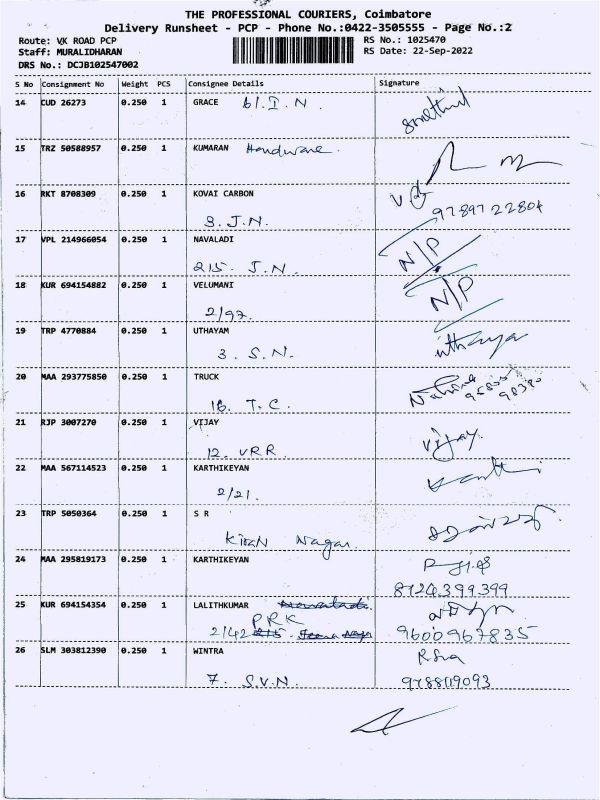 THE PROFESSIONAL COURIERS, Coimbatore
Delivery Runsheet - PCP - Phone No.:0422-3505555 - Page No.:2
Route: VK ROAD PCP
RS No.: 1025470
Staff: MURALIDHARAN
RS Date: 22-Sep-2022
DRS No.: DCJB102547002
S No Consignment No Weight PCS Consignee Details Signature
14 CUD 26273 0.250 1 GRACE 61. I. N.
15 TRZ 50588957 0.250 1 KUMARAN Hardware.
16 RKT 8708309 0.250 1 KOVAI CARBON
3. J.N. 9789722804
17 VPL 214966054 0.250 1 NAVALADI N/P
215. J.N.
18 KUR 694154882 0.250 1 VELUMANI N/P
2/92.
19 TRP 4770884 0.250 1 UTHAYAM uthaya
3. S.N.
20 MAA 293775850 0.250 1 TRUCK
16. T.C.
21 RJP 3007270 0.250 1 VIJAY vijay
12. VRR.
22 MAA 567114523 0.250 1 KARTHIKEYAN
2/21.
23 TRP 5050364 0.250 1 S R
Kiran Nagar.
24 MAA 295819173 0.250 1 KARTHIKEYAN
8124399399
25 KUR 694154354 0.250 1 LALITHKUMAR
PRK
2/42 9600967835
26 SLM 303812390 0.250 1 WINTRA
7. S.V.N. 9788119093